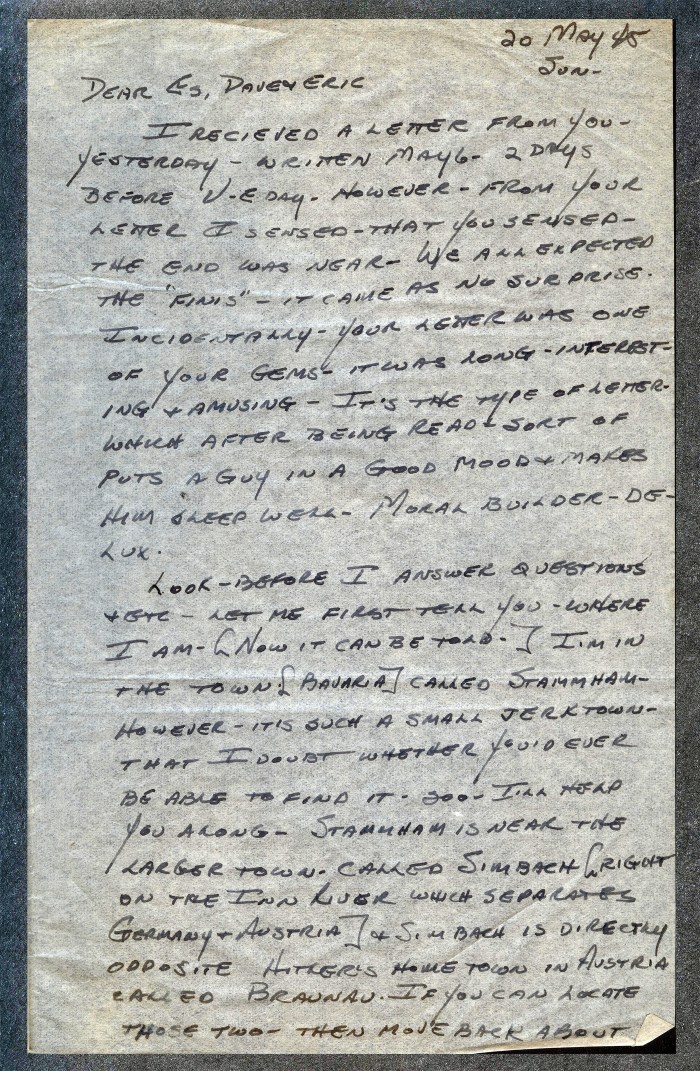 20 May 45
Sun-
Dear Es, Davey & Eric
I recieved a letter from you-
yesterday - written May 6 - 2 days
before V-E day. However - from your
letter I sensed - that you sensed -
the end was near - We all expected
the "finis" - it came as no surprise.
Incidentally - your letter was one
of your gems - it was long - interest-
ing & amusing - It's the type of letter-
which after being read - sort of
puts a guy in a good mood & makes
him sleep well - Moral builder - De-
lux.
Look - before I answer questions
& etc - let me first tell you - where
I am - [Now it can be told -] I'm in
the town [Bavaria] called Stammham -
However - it's such a small jerktown -
that I doubt whether you'd ever
be able to find it - soo - I'll help
you along - Stammham is near the
larger town - called Simbach [right
on the Inn River which separates
Germany & Austria] & Simbach is directly
opposite Hitler's home town in Austria
called Braunau. If you can locate
those two - then move back about